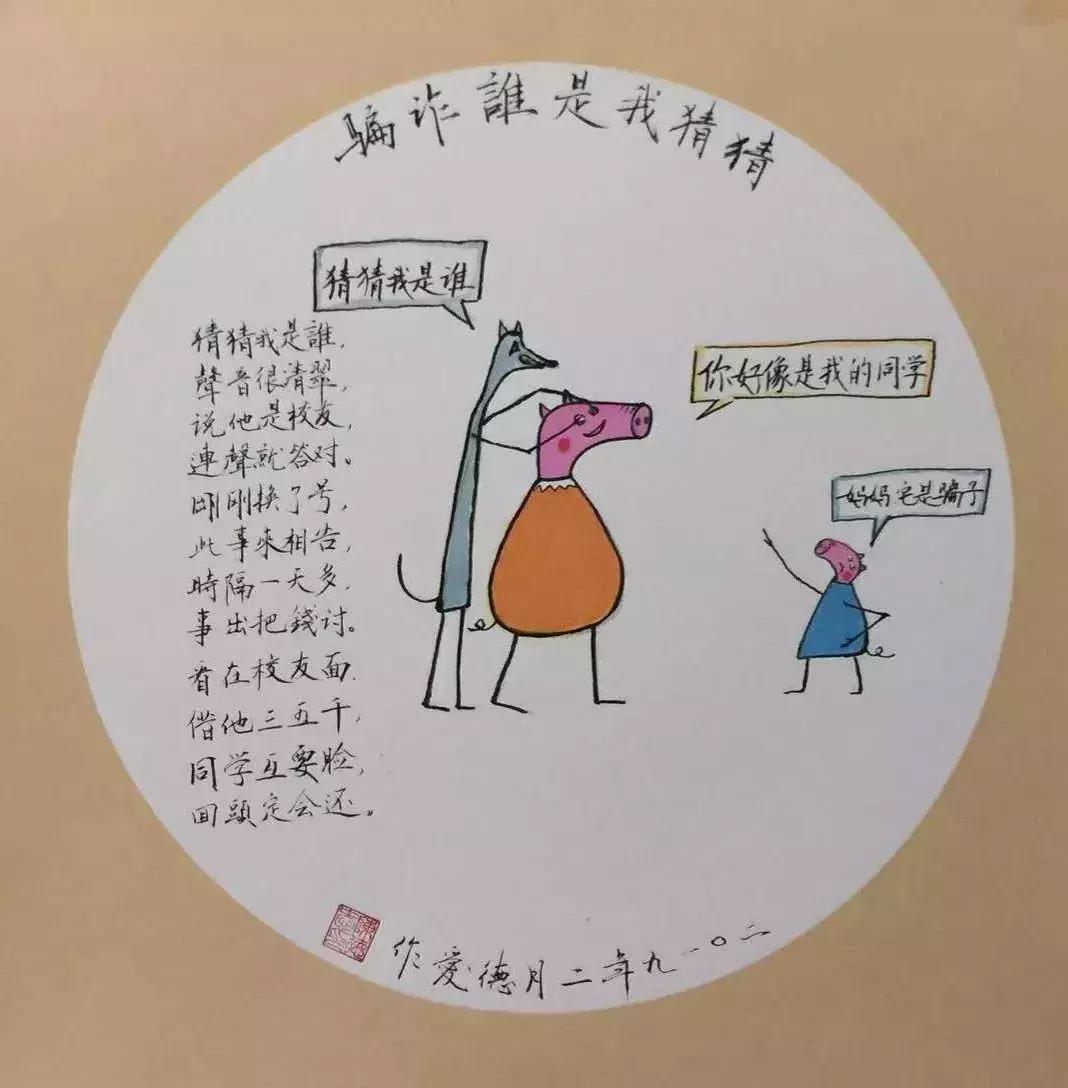 猜猜我是誰诈骗
猜猜我是谁
你好像是我的同学
妈妈它是骗子
猜猜我是誰,
聲音很清翠,
说他是校友,
連聲就答对。
刚刚换了号,
此事來相告,
時隔一天多,
事出把錢讨。
看在校友面,
借他三五千,
同学互要脸,
囬頭定会还。
二〇一九年二月德愛作